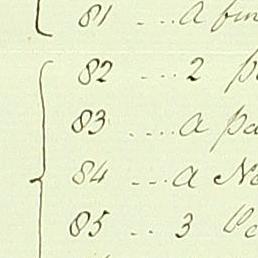 81 ... A fin
82 ... 2 pa
83 .... A pa
84 ... A No
85 .. 3